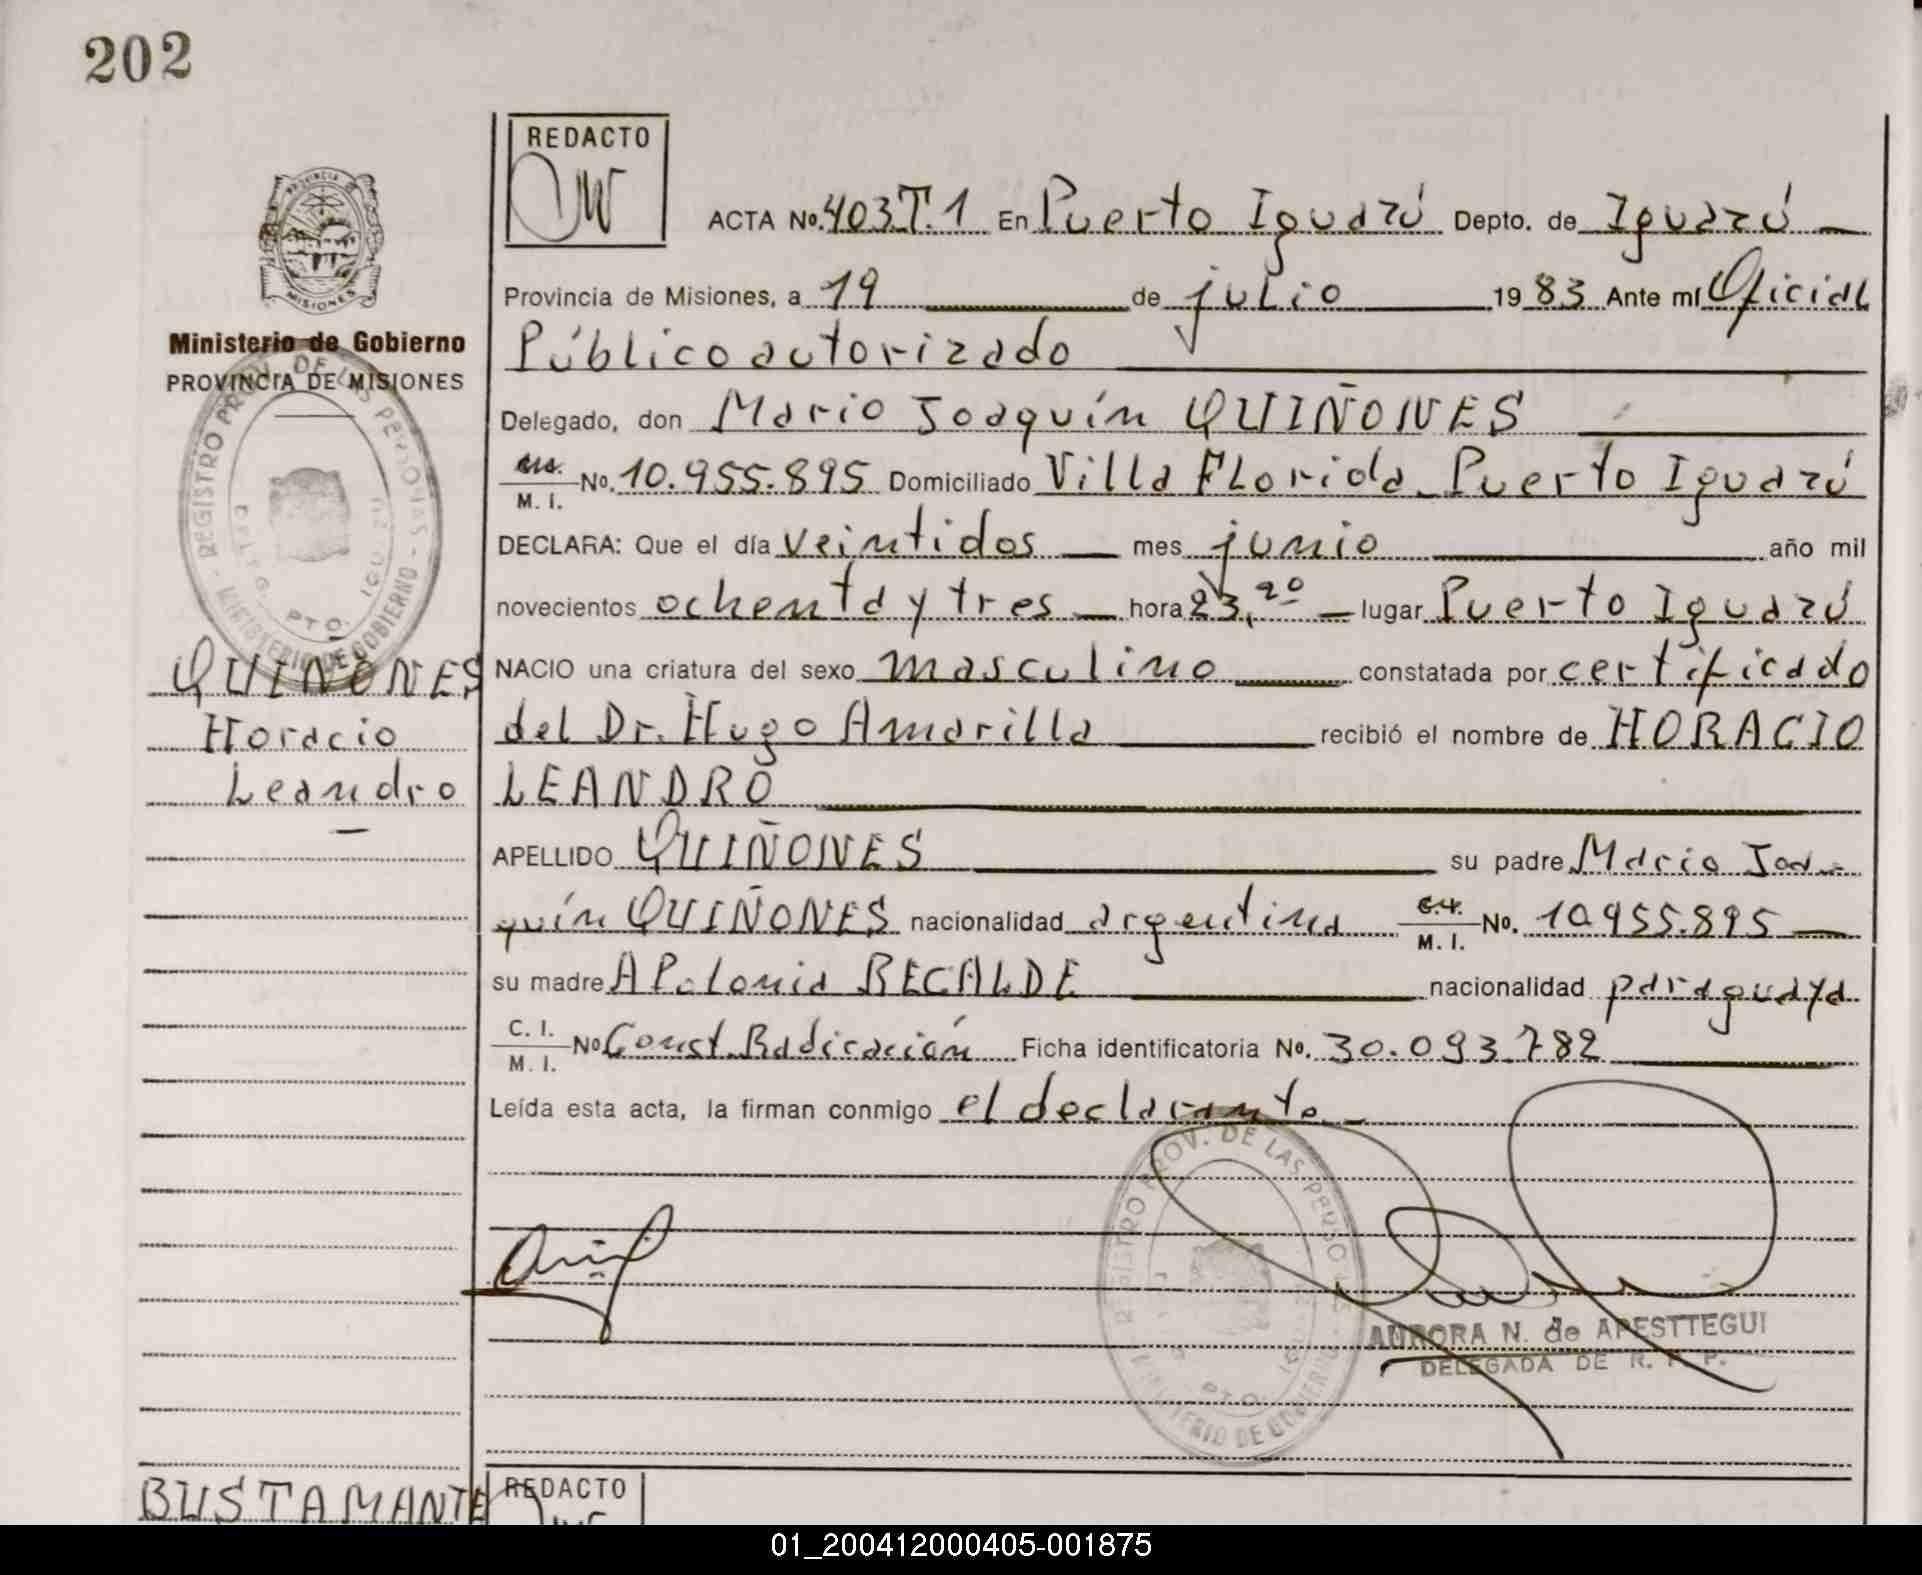 202
REDACTO
PROVINCIA DE
MISIONES
ACTA No. 403 T.1 En Puerto Iguazú Depto. de Iguazú —
Provincia de Misiones, a 19 de julio 1983 Ante mí Oficial
Público autorizado
Ministerio de Gobierno
PROVINCIA DE MISIONES
REGISTRO PROV. DE LAS PERSONAS - MINISTERIO DE GOBIERNO -
PTO. IGUAZU
Delegado, don Mario Joaquín QUIÑONES
C.I. M. I. No. 10.955.895 Domiciliado Villa Florida - Puerto Iguazú
DECLARA: Que el día veintidos — mes junio año mil
novecientos ochenta y tres — hora 23,20 — lugar Puerto Iguazú
NACIO una criatura del sexo masculino constatada por certificado
del Dr. Hugo Amarilla recibió el nombre de HORACIO
LEANDRO
QUIÑONES
Horacio
Leandro
—
APELLIDO QUIÑONES su padre Mario Joa-
quín QUIÑONES nacionalidad argentina C.I. M. I. No. 10.955.895 —
su madre APolonia RECALDE nacionalidad paraguaya
C. I. M. I. No Const. Radicación Ficha identificatoria No. 30.093.782
Leída esta acta, la firman conmigo el declarante.—
REGISTRO PROV. DE LAS PERSONAS - MINISTERIO DE GOBIERNO
PTO. IGUAZU
AURORA N. de APESTTEGUI
DELEGADA DE R. P. P.
BUSTAMANTE
REDACTO
01_200412000405-001875